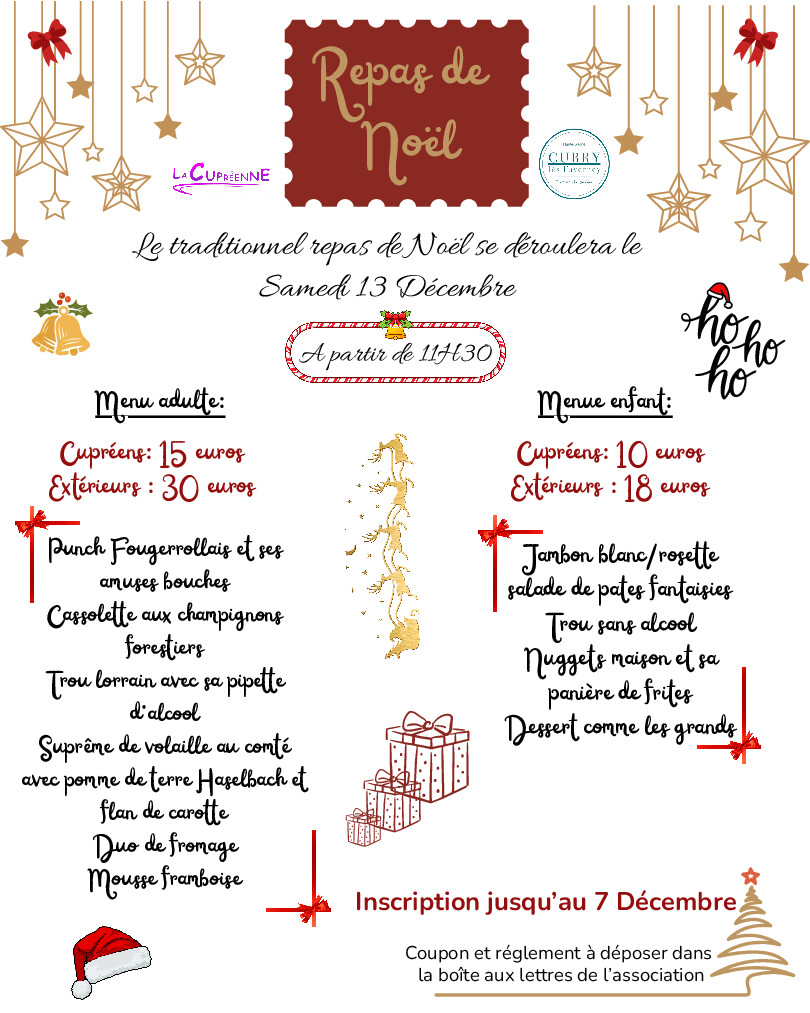 Repas de
Noël
LA CUPRÉENNE
CUBRY
lès Faverney
Le traditionnel repas de Noël se déroulera le
Samedi 13 Décembre
A partir de 11H30
ho
ho
ho
Menu adulte:
Cupréens: 15 euros
Extérieurs : 30 euros
Punch Fougerrollais et ses
amuses bouches
Cassolette aux champignons
forestiers
Trou lorrain avec sa pipette
d'alcool
Suprême de volaille au comté
avec pomme de terre Haselbach et
flan de carotte
Duo de fromage
Mousse framboise
Menue enfant:
Cupréens: 10 euros
Extérieurs : 18 euros
Jambon blanc/rosette
salade de pates fantaisies
Trou sans alcool
Nuggets maison et sa
panière de frites
Dessert comme les grands
Inscription jusqu'au 7 Décembre
Coupon et réglement à déposer dans
la boîte aux lettres de l'association